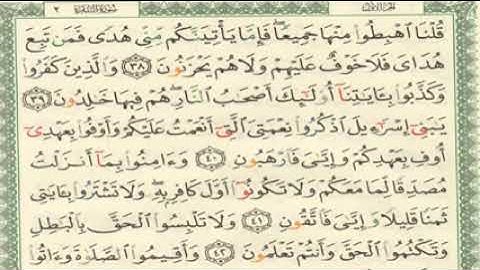 سورة البقرة ٢
الجزء الأول
قُلْنَا ٱهْبِطُوا۟ مِنْهَا جَمِيعًا ۖ فَإِمَّا يَأْتِيَنَّكُم مِّنِّى هُدًى فَمَن تَبِعَ
هُدَاىَ فَلَا خَوْفٌ عَلَيْهِمْ وَلَا هُمْ يَحْزَنُونَ ٣٨ وَٱلَّذِينَ كَفَرُوا۟
وَكَذَّبُوا۟ بِـَٔايَـٰتِنَآ أُو۟لَـٰٓئِكَ أَصْحَـٰبُ ٱلنَّارِ ۖ هُمْ فِيهَا خَـٰلِدُونَ ٣٩
يَـٰبَنِىٓ إِسْرَٰٓءِيلَ ٱذْكُرُوا۟ نِعْمَتِىَ ٱلَّتِىٓ أَنْعَمْتُ عَلَيْكُمْ وَأَوْفُوا۟ بِعَهْدِىٓ
أُوفِ بِعَهْدِكُمْ وَإِيَّـٰىَ فَٱرْهَبُونِ ٤٠ وَءَامِنُوا۟ بِمَآ أَنزَلْتُ
مُصَدِّقًا لِّمَا مَعَكُمْ وَلَا تَكُونُوٓا۟ أَوَّلَ كَافِرٍۭ بِهِۦ ۖ وَلَا تَشْتَرُوا۟ بِـَٔايَـٰتِى
ثَمَنًا قَلِيلًا وَإِيَّـٰىَ فَٱتَّقُونِ ٤١ وَلَا تَلْبِسُوا۟ ٱلْحَقَّ بِٱلْبَـٰطِلِ
وَتَكْتُمُوا۟ ٱلْحَقَّ وَأَنتُمْ تَعْلَمُونَ ٤٢ وَأَقِيمُوا۟ ٱلصَّلَوٰةَ وَءَاتُوا۟